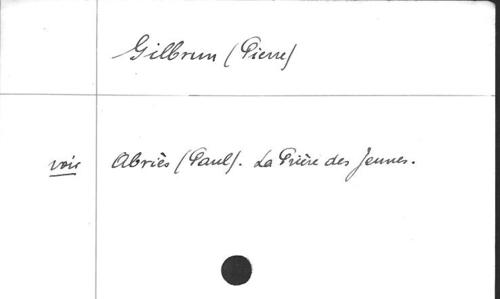 Gilbrun (Pierre)
voir Abriès (Paul). La Prière des Jeunes.